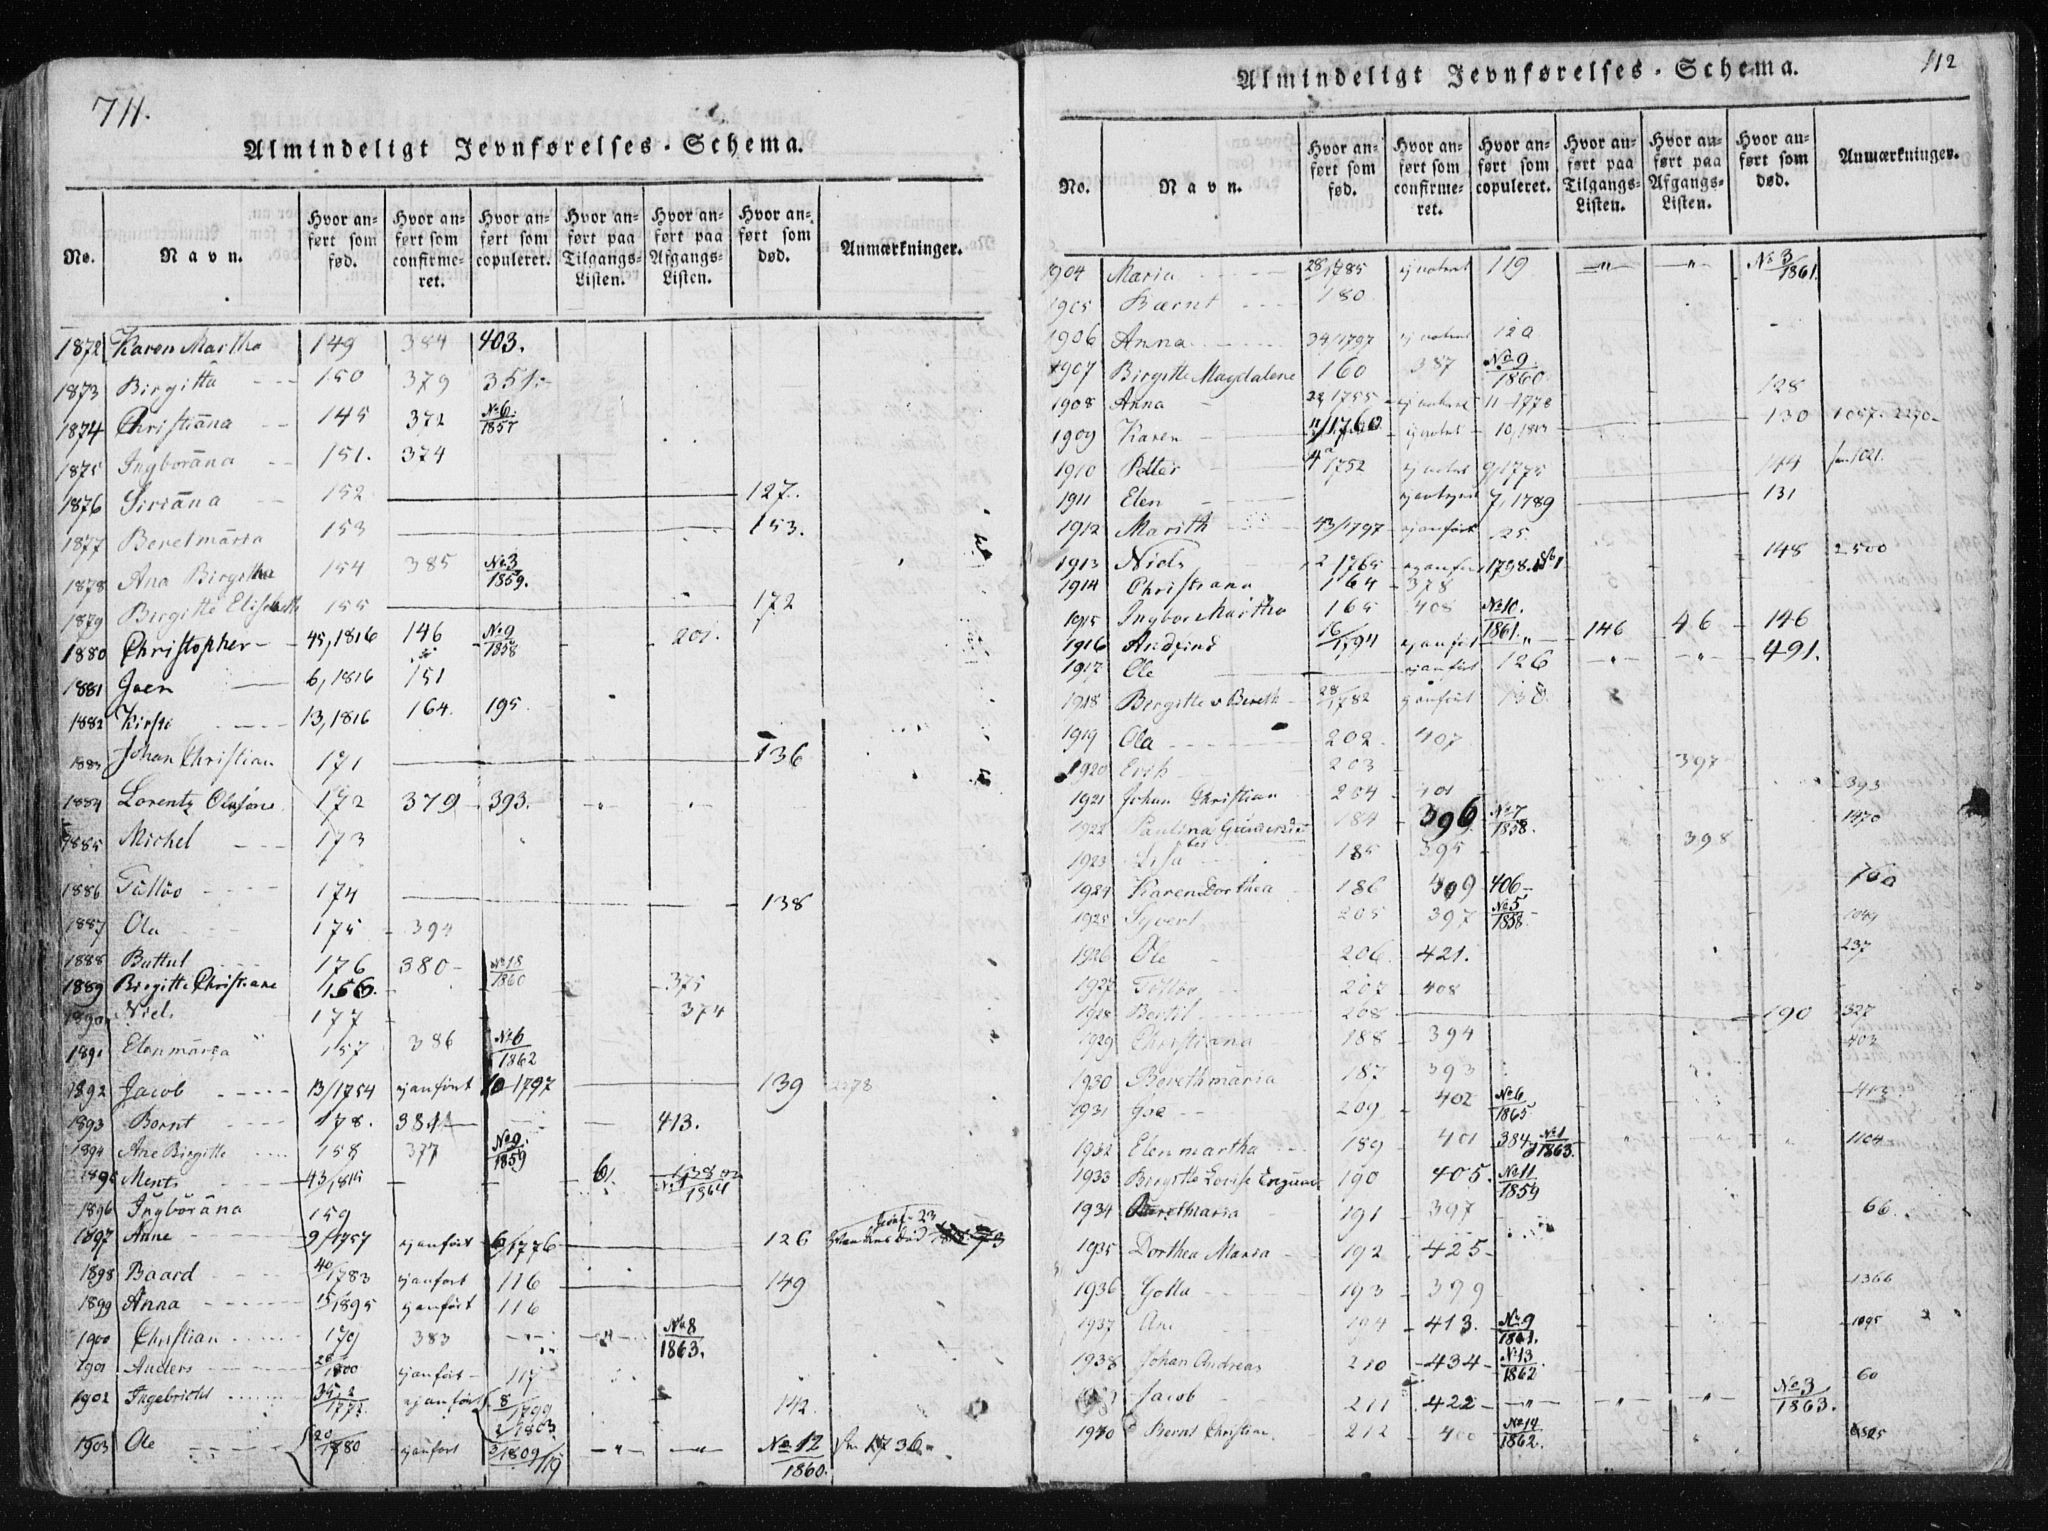 711.
Almindeligt Jevnførelses-Schema.
No. Navn. Hvor anført som fød. Hvor anført som confirmeret. Hvor anført som copuleret. Hvor anført paa Tilgangs-Listen. Hvor anført paa Afgangs-Listen. Hvor anført som død. Anmærkninger.
1872 Karen Martha 149 384 403.
1873 Birgitta 150 379 351.
1874 Christiana 145 372 No 6/1857
1875 Ingborana 151. 374
1876 Siriana 152 127.
1877 Beretmaria 153 153.
1878 Ana Birgitha 154 385 No 3/1859.
1879 Birgitte Elisabeth 155 172
1880 Christopher 45, 1816 146 No 9/1858 201.
1881 Joen 6, 1816 151
1882 Kirsti 13, 1816 164. 195.
1883 Johan Christian 171 136
1884 Lorentz Olufsøn 172 379 393.
1885 Michel 173
1886 Tølløv 174 138
1887 Ola 175 394
1888 Buttul 176 380 No 18/1860
1889 Birgitte Christiane 156. 375
1890 Niels 177 374
1891 Elenmaria 157 386 No 6/1862
1892 Jacob 13/1754 ej anført 10-1797 139 2278
1893 Bernt 178. 381 413.
1894 Ane Birgitte 158 377 No 9/1859
1895 Ments 43/1815 61. No /1864
1896 Ingborana 159
1897 Anne 9/1757 ej anført 6/1776 126
1898 Baard 40/1783 ej anført 116 149
1899 Anna 15/1895 ej anført 116
1900 Christian 179 383 -"- -"- No 8/1863.
1901 Anders 20/1800 ej anført 117
1902 Ingebricht 35/1772 ej anført 8/1799 142.
2/1803.
1903 Ole 20/1780 ej anført 3/1809/119 -"- -"- No 12/1860. 1736.
112
Almindeligt Jevnførelses-Schema.
No. Navn. Hvor anført som fød. Hvor anført som confirmeret. Hvor anført som copuleret. Hvor anført paa Tilgangs-Listen. Hvor anført paa Afgangs-Listen. Hvor anført som død. Anmærkninger.
1904 Maria 28/1785 ej noteret 119 -"- -"- No 3/1861.
1905 Bærnt 180
1906 Anna 34/1797 ej noteret 120
1907 Birgitte Magdalene 160 387 No 9/1860
1908 Anna 22/1755 ej noteret 11-1778 128
1909 Karen 11/1760 ej noteret 10, 1813 130 1057. 2270
1910 Petter 4/1752 ej noteret 9/1775 144 1021.
1911 Elen 7, 1789 131
1912 Marith 43/1797 ej anført 25.
1913 Niels 2 1765 ej anført 1798. 148 2500
1914 Christiana 164 378
1915 Ingbor Martha 165 408 No 10./1861.
1916 Andfind 16/1794 ej anført " 146 46 146
1917 Ole ej anført 126 -"- -"- 491.
1918 Birgitte v Bereth 28/1782 ej anført 138.
1919 Ola 202 407
1920 Erik 203 397
1921 Johan Christian 204 401 393
1922 Paulina 184 396 No 7/1858. 1470
1923 Lisa 185 395 398
1924 Karen Dorthea 186 409 406 760
1925 Syvert 205 397 No 5/1858 1084
1926 Ole 206. 421. 237
1927 Tølløv 207 408
1928 Bertil 208 190 327
1929 Christiana 188 394 403
1930 Berethmaria 187 393
1931 Goe 209 402 No 6/1865 413
1932 Elen martha 189 401 384 No 1/1863. 1104
1933 Birgitte Lovise 190 405. No 11/1859
1934 Berethmaria 191 397 66.
1935 Dorthea Maria 192 425
1936 Golla 193 399 1366
1937 Ane 194 413. No 9/1861. 1095
1938 Johan Andreas 210 434 No 13/1862
Jacob 211 422 -"- -"- -"- No 3/1863. 60
1940 Bernt Christian. 212 400 No 14/1862.